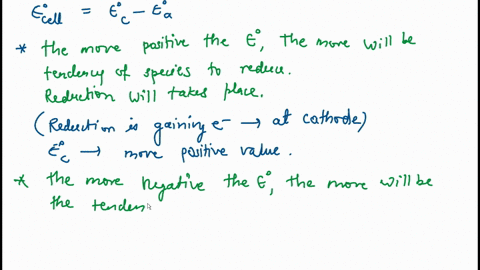 E°cell = E°c - E°a
* The more positive the E°, the more will be
tendency of species to reduce.
Reduction will takes place.
(Reduction is gaining e⁻ → at cathode)
E°c → more positive value.
* The more Negative the E°, the more will be
the tenden